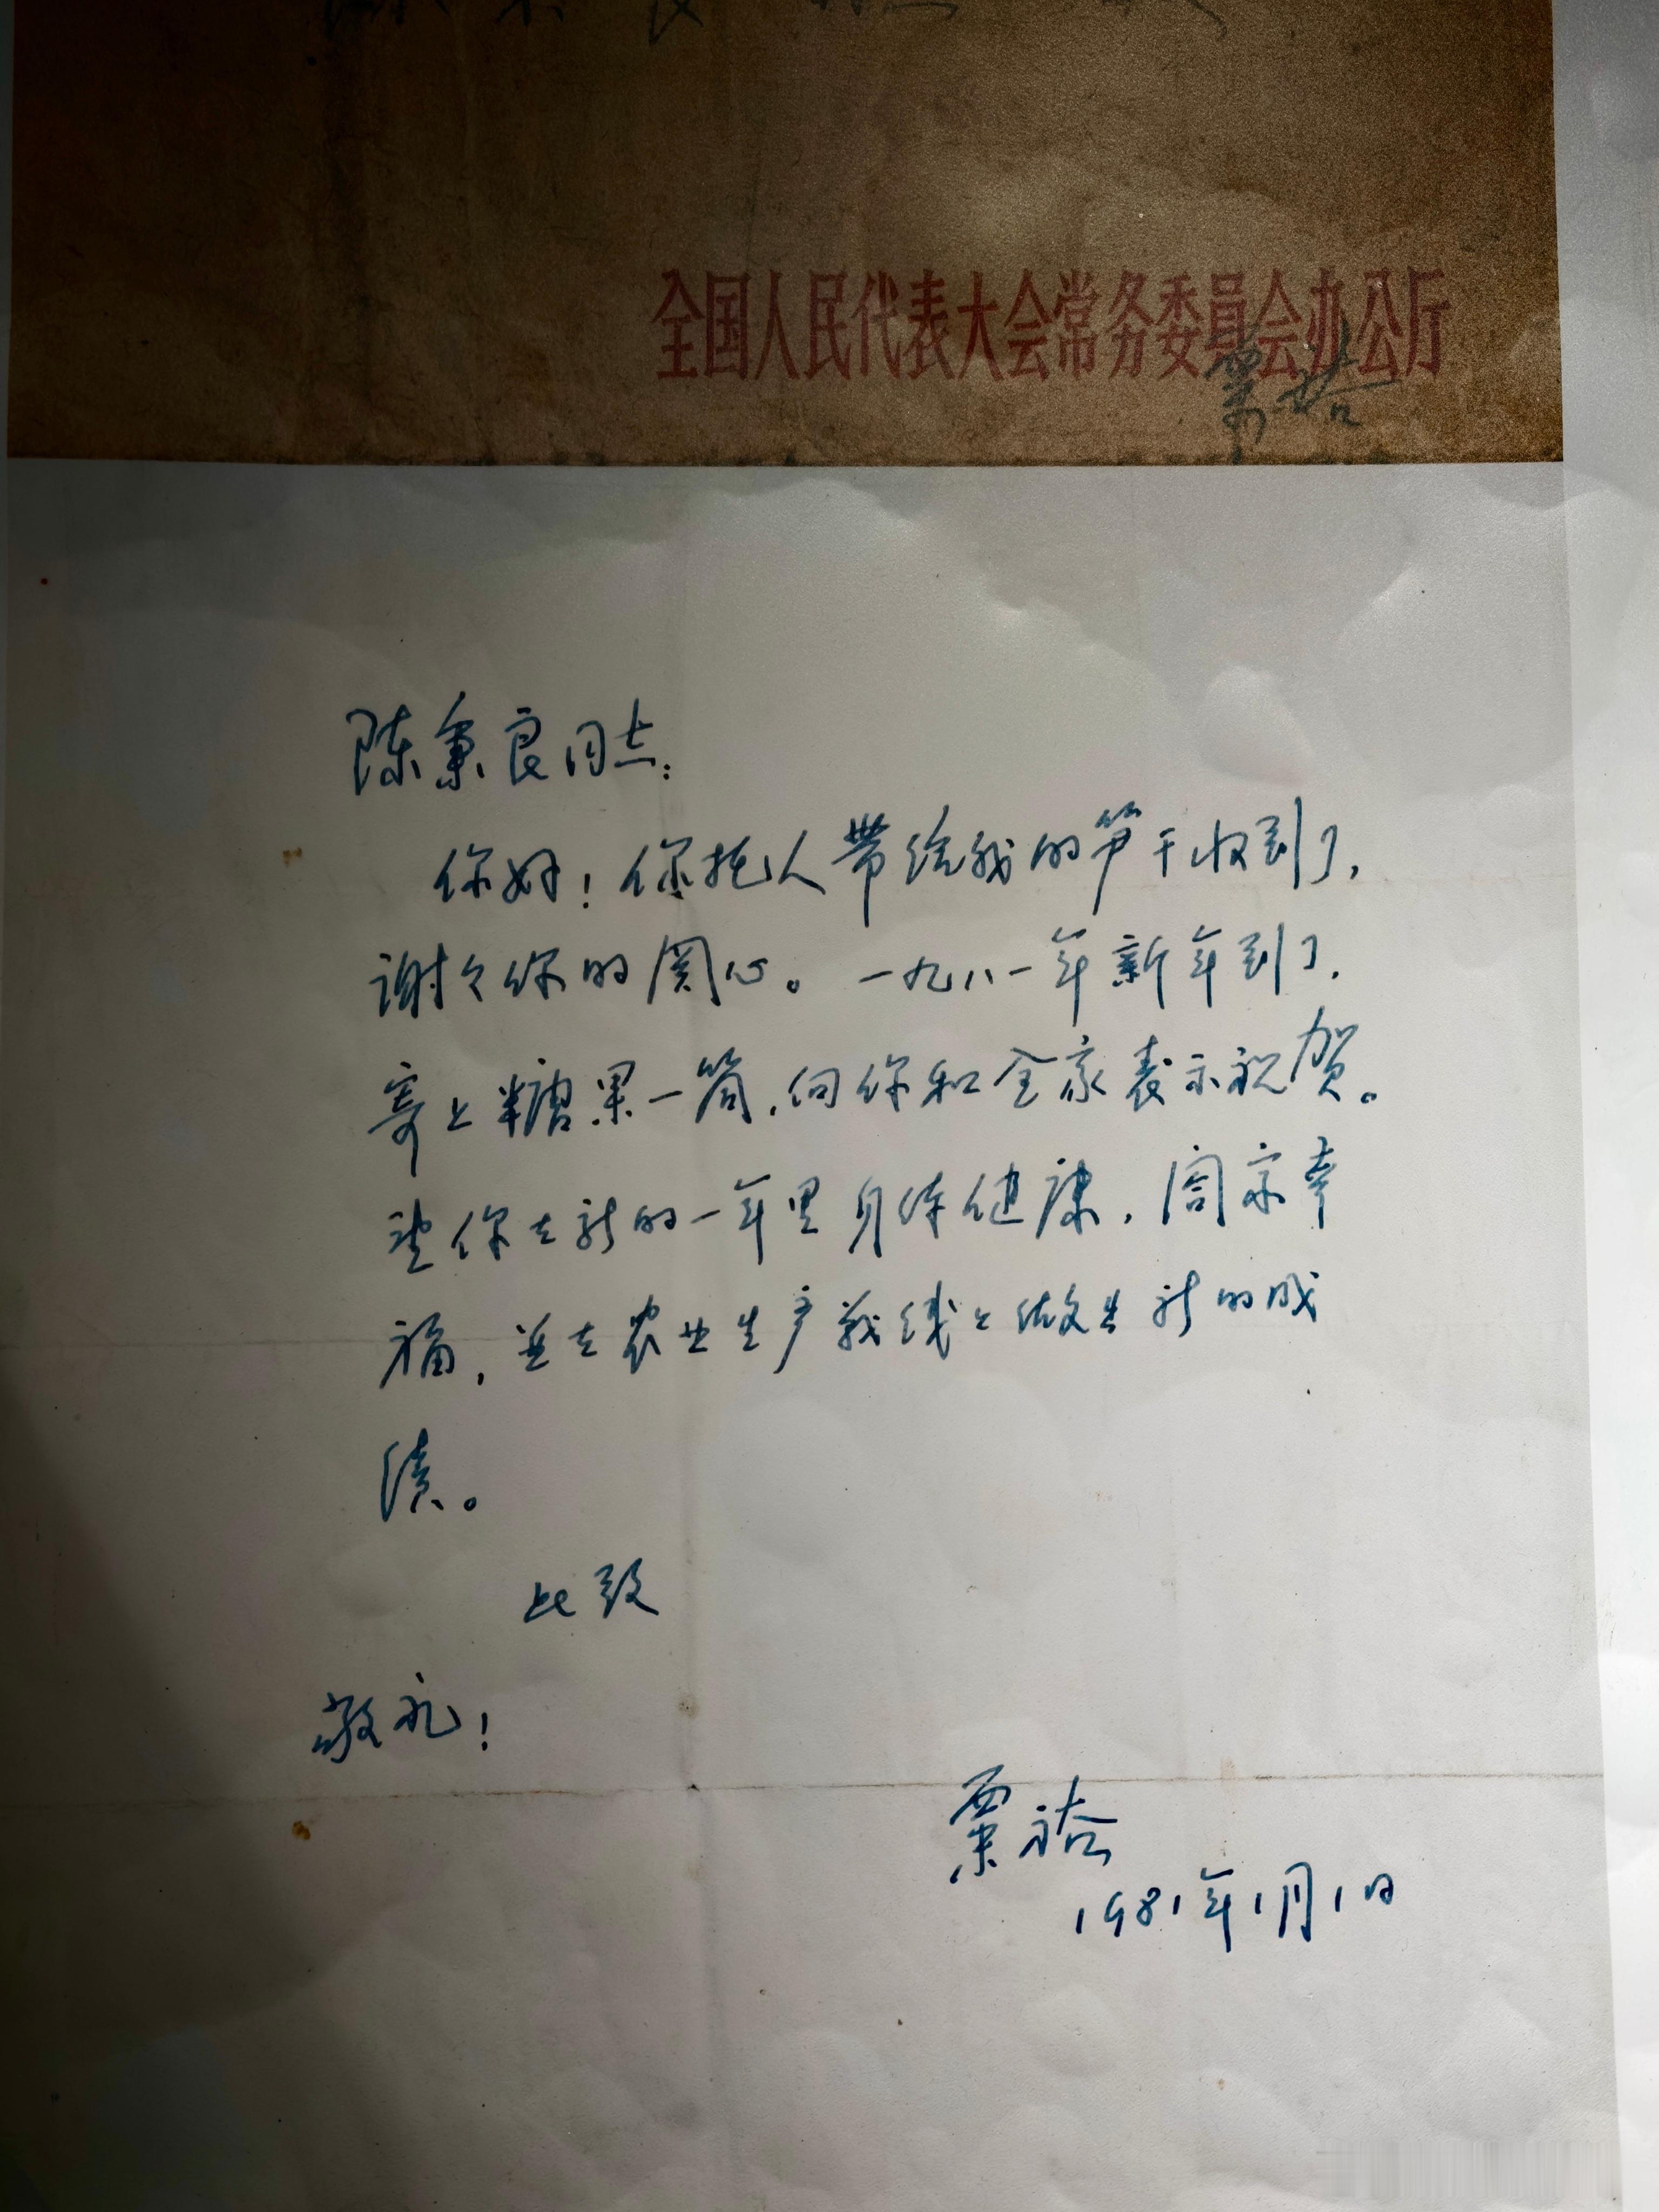 全国人民代表大会常务委员会办公厅
粟裕
陈秉良同志:
你好!你托人带给我的笋干收到了,
谢々你的关心。一九八一年新年到了,
寄上糖果一筒,向你和全家表示祝贺。
望你在新的一年里身体健康,阖家幸
福,并在农业生产战线上做出新的成
绩。
此致
敬礼!
粟裕
1981年1月1日